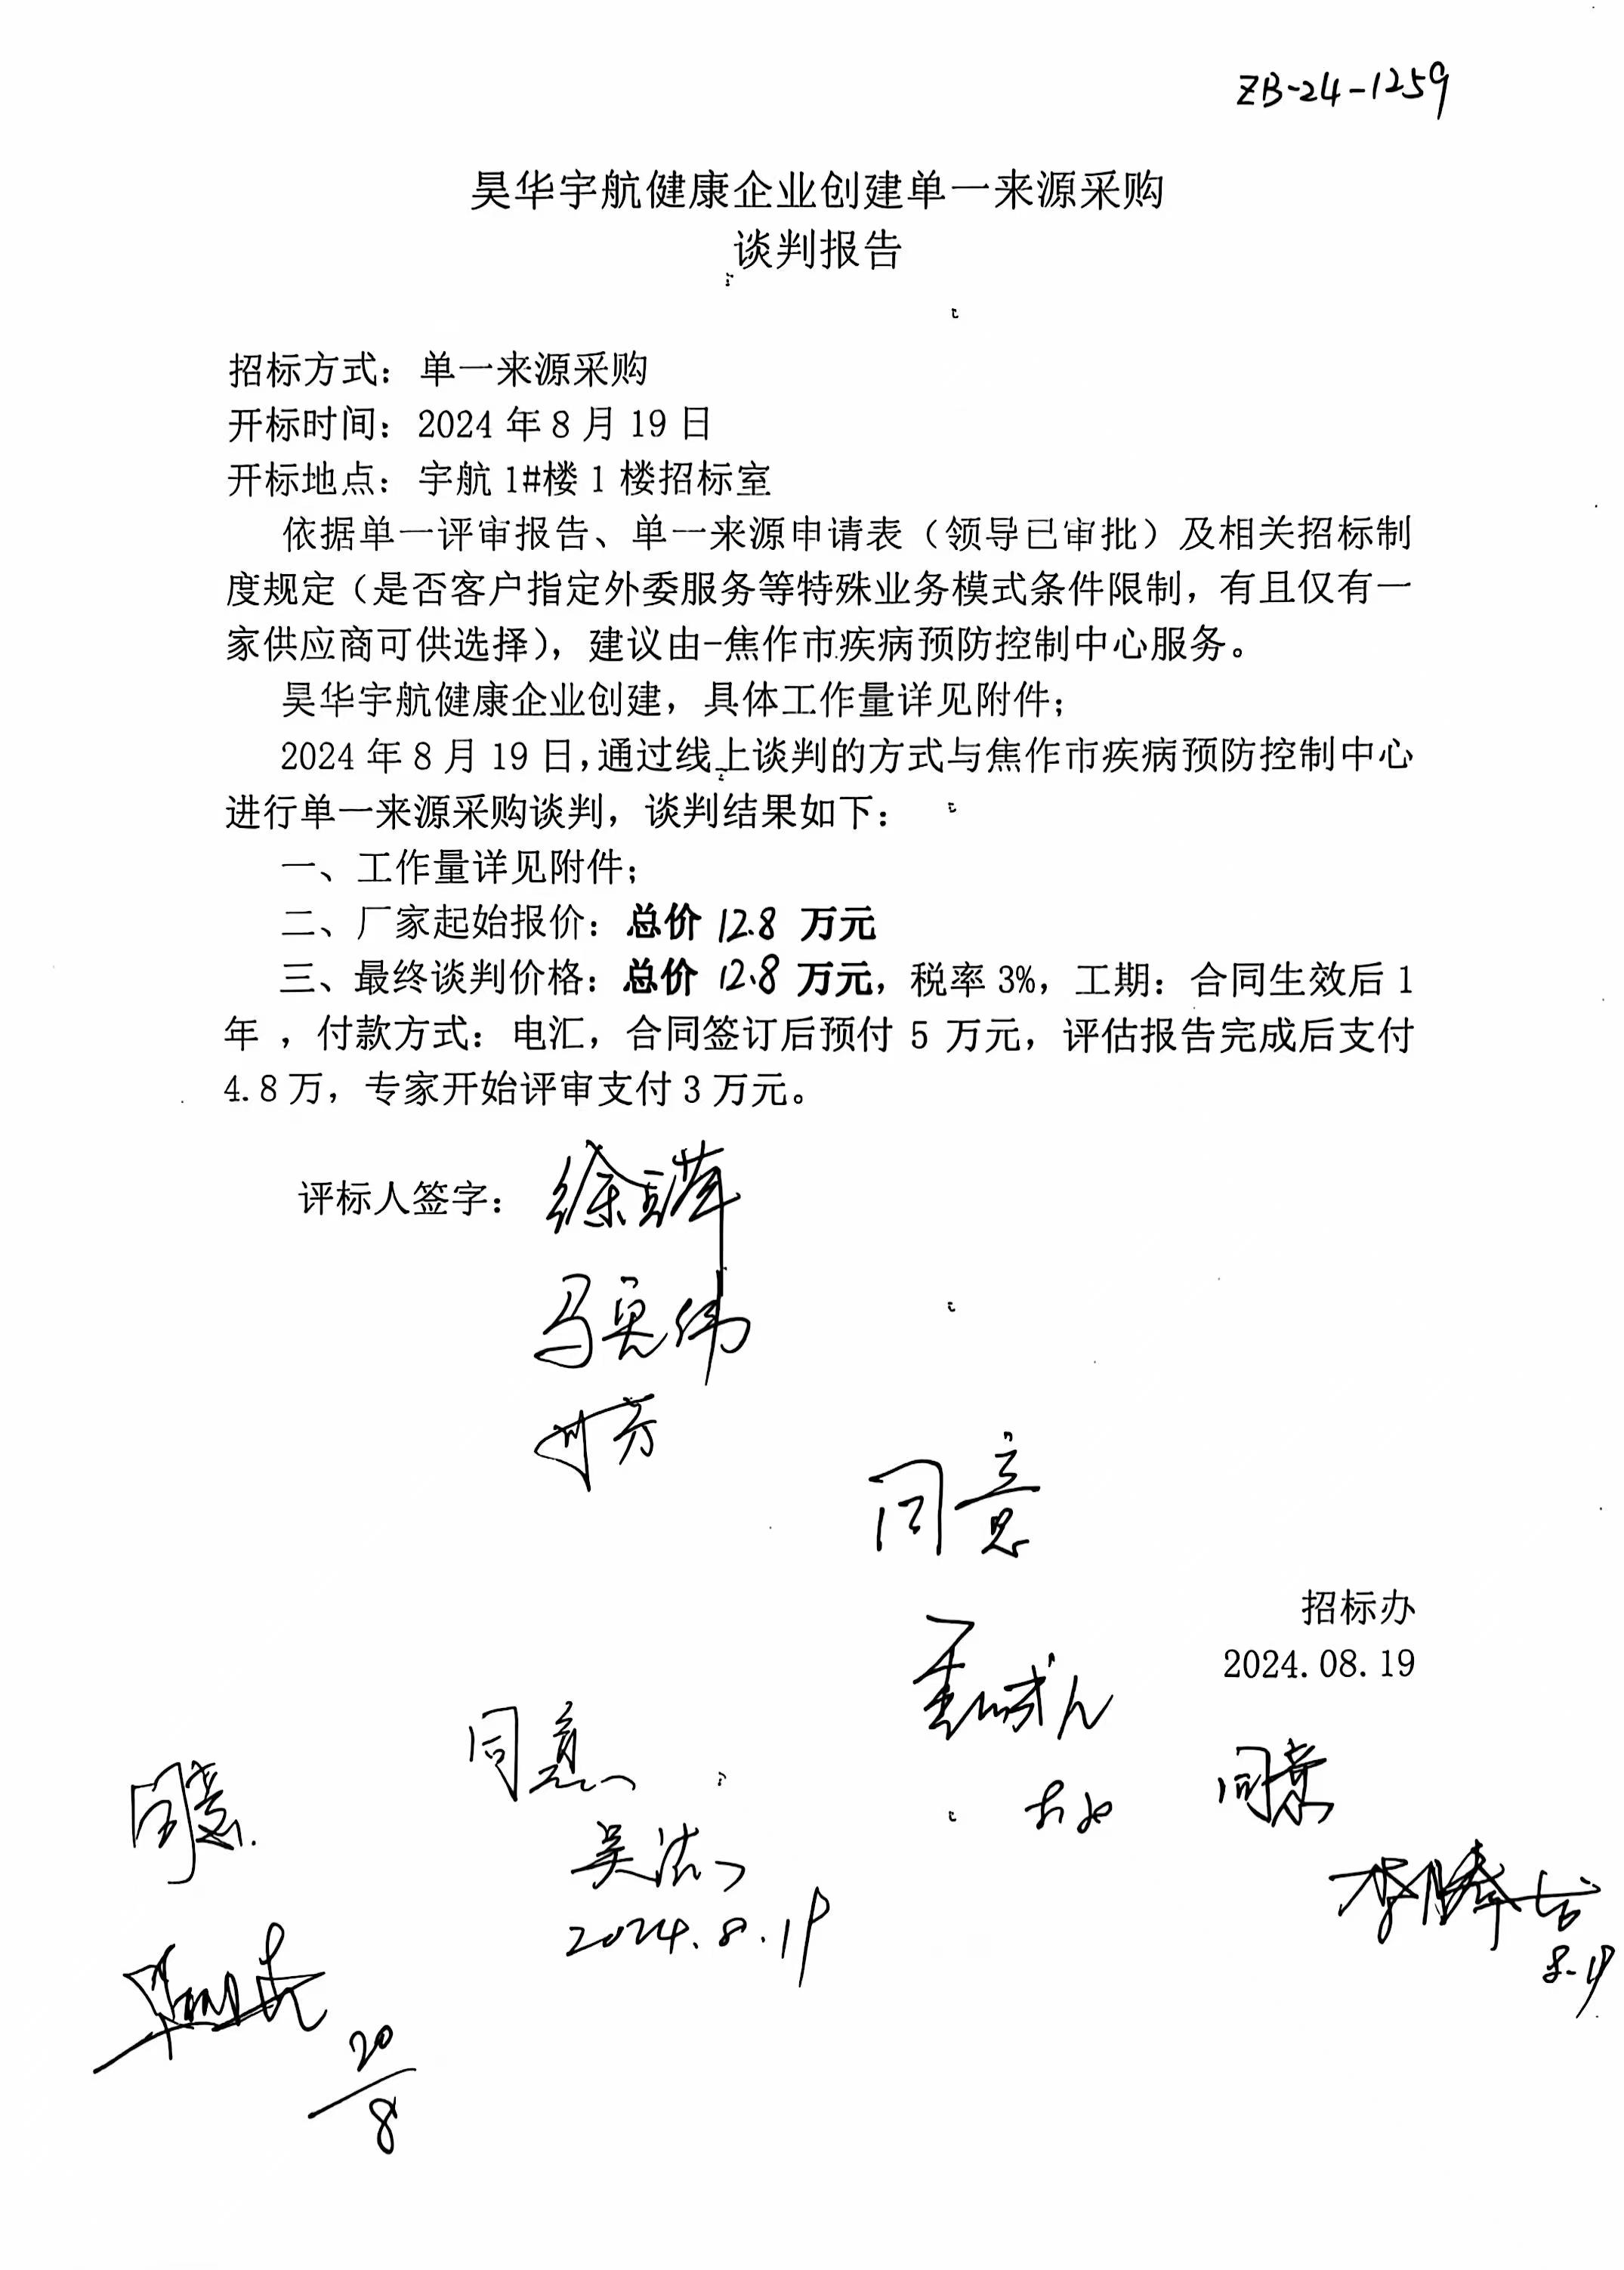 ZB-24-1259
昊华宇航健康企业创建单一来源采购
谈判报告
招标方式：单一来源采购
开标时间：2024 年 8 月 19 日
开标地点：宇航 1#楼 1 楼招标室
依据单一评审报告、单一来源申请表（领导已审批）及相关招标制
度规定（是否客户指定外委服务等特殊业务模式条件限制，有且仅有一
家供应商可供选择），建议由-焦作市疾病预防控制中心服务。
昊华宇航健康企业创建，具体工作量详见附件；
2024 年 8 月 19 日，通过线上谈判的方式与焦作市疾病预防控制中心
进行单一来源采购谈判，谈判结果如下：
一、工作量详见附件；
二、厂家起始报价：总价 12.8 万元
三、最终谈判价格：总价 12.8 万元，税率 3%，工期：合同生效后 1
年 ，付款方式：电汇，合同签订后预付 5 万元，评估报告完成后支付
4.8 万，专家开始评审支付 3 万元。
评标人签字：
同意
招标办
2024.08.19
同意
同意
同意
2024.8.19
8.19
20
8